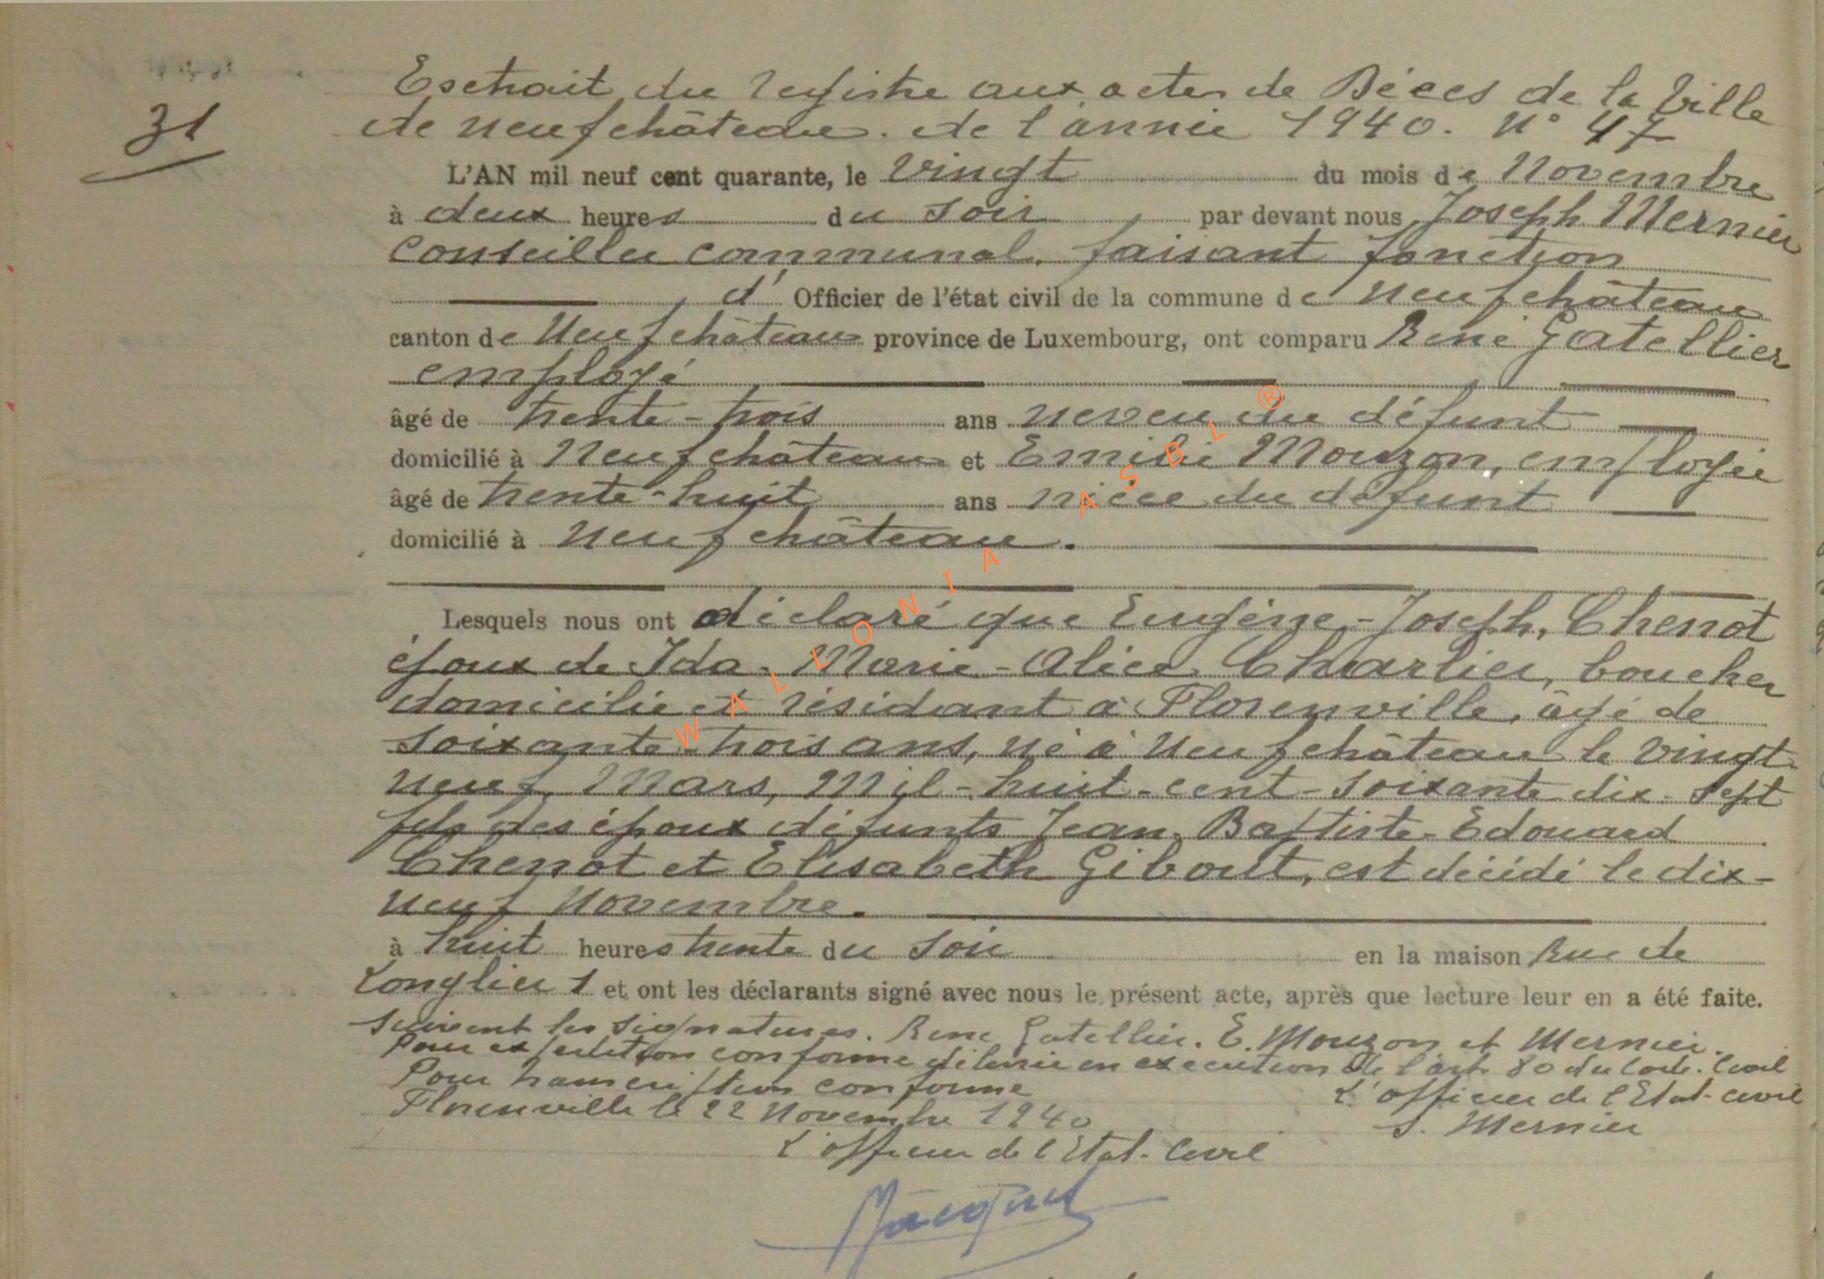 31
Extrait du registre aux actes de Décès de la Ville
de Neufchâteau. de l'année 1940. N° 47
L'AN mil neuf cent quarante, le vingt du mois de Novembre
à deux heures du soir par devant nous Joseph Mernier
conseiller communal, faisant fonction
d' Officier de l'état civil de la commune de Neufchâteau
canton de Neufchâteau province de Luxembourg, ont comparu René Gatellier
employé
âgé de trente-trois ans neveu du défunt
domicilié à Neufchâteau et Emilie Mouzon, employée
âgé de trente-huit ans nièce du défunt
domicilié à Neufchâteau.
Lesquels nous ont déclaré que Eugène-Joseph, Chenot
époux de Ida-Marie-Alice Charlier, boucher
domicilié et résidant à Florenville, âgé de
soixante-trois ans, né à Neufchâteau le vingt-
neuf Mars, Mil-huit-cent-soixante dix-sept
fils des époux défunts Jean-Baptiste-Edouard
Chenot et Elisabeth Gibout, est décédé le dix-
neuf Novembre.
à huit heures trente du soir en la maison Rue de
Longlier 1 et ont les déclarants signé avec nous le présent acte, après que lecture leur en a été faite.
Suivent les signatures. René Gatellier. E. Mouzon et Mernier.
Pour expédition conforme délivrée en exécution de l'art. 80 du Code. Civil
Pour transcription conforme L'officier de l'Etat-civil
Florenville le 22 Novembre 1940 S. Mernier
L'officier de l'Etat-Civil
WALLONIA ASBL ®